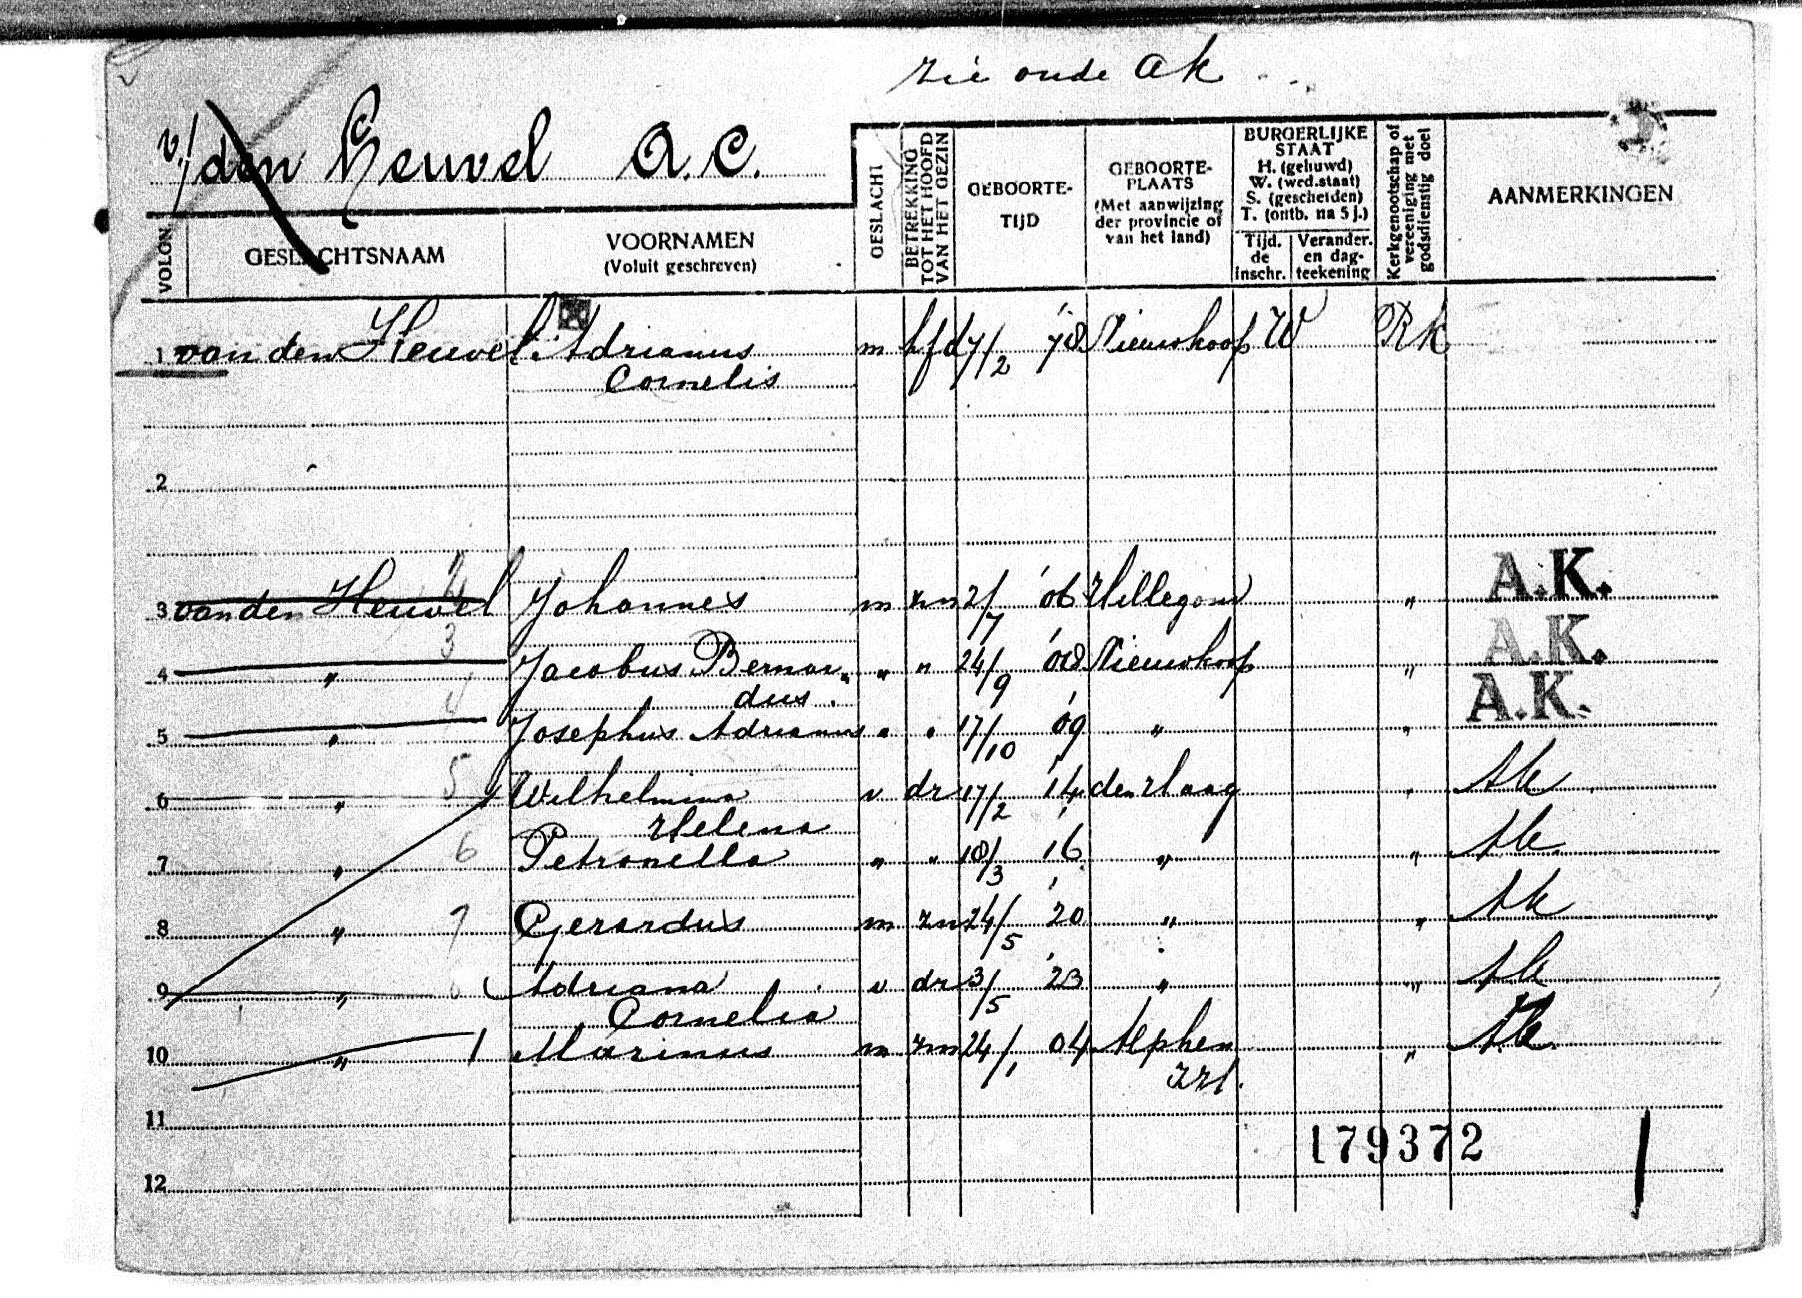 zie oude Ak
v/den Heuvel A.C.
VOLGN.
GESLACHTSNAAM
VOORNAMEN
(Voluit geschreven)
GESLACHT
BETREKKING
TOT HET HOOFD
VAN HET GEZIN
GEBOORTE-
TIJD
GEBOORTE-
PLAATS
(Met aanwijzing
der provincie of
van het land)
BURGERLIJKE
STAAT
H. (gehuwd)
W. (wed.staat)
S. (gescheiden)
T. (ontb. na 5 j.)
Tijd.
de
inschr.
Verander.
en dag-
teekening
Kerkgenootschap of
vereeniging met
godsdienstig doel
AANMERKINGEN
1 van den Heuvel Adrianus m hfd 7/2 '78 Nieuwkoop W RK
Cornelis
2
2
3 van den Heuvel Johannes m zn 2/7 '06 Hillegom " A.K.
3
4 " Jacobus Bernar- " " 24/9 '08 Nieuwkoop " A.K.
dus.
4
5 " Josephus Adrianus " " 17/10 '09 " " A.K.
6 " 5 Wilhelmina v dr 17/2 '14 den Haag " Ak
Helena
7 " 6 Petronella " " 18/3 '16 " " Ak
8 " 7 Gerardus m zn 24/5 '20 " " Ak
9 " Adriana v dr 3/5 '23 " " Ak
Cornelia
10 " 1 Marinus m zn 24/1 04 Alphen " Ak
ZH.
11
179372
12